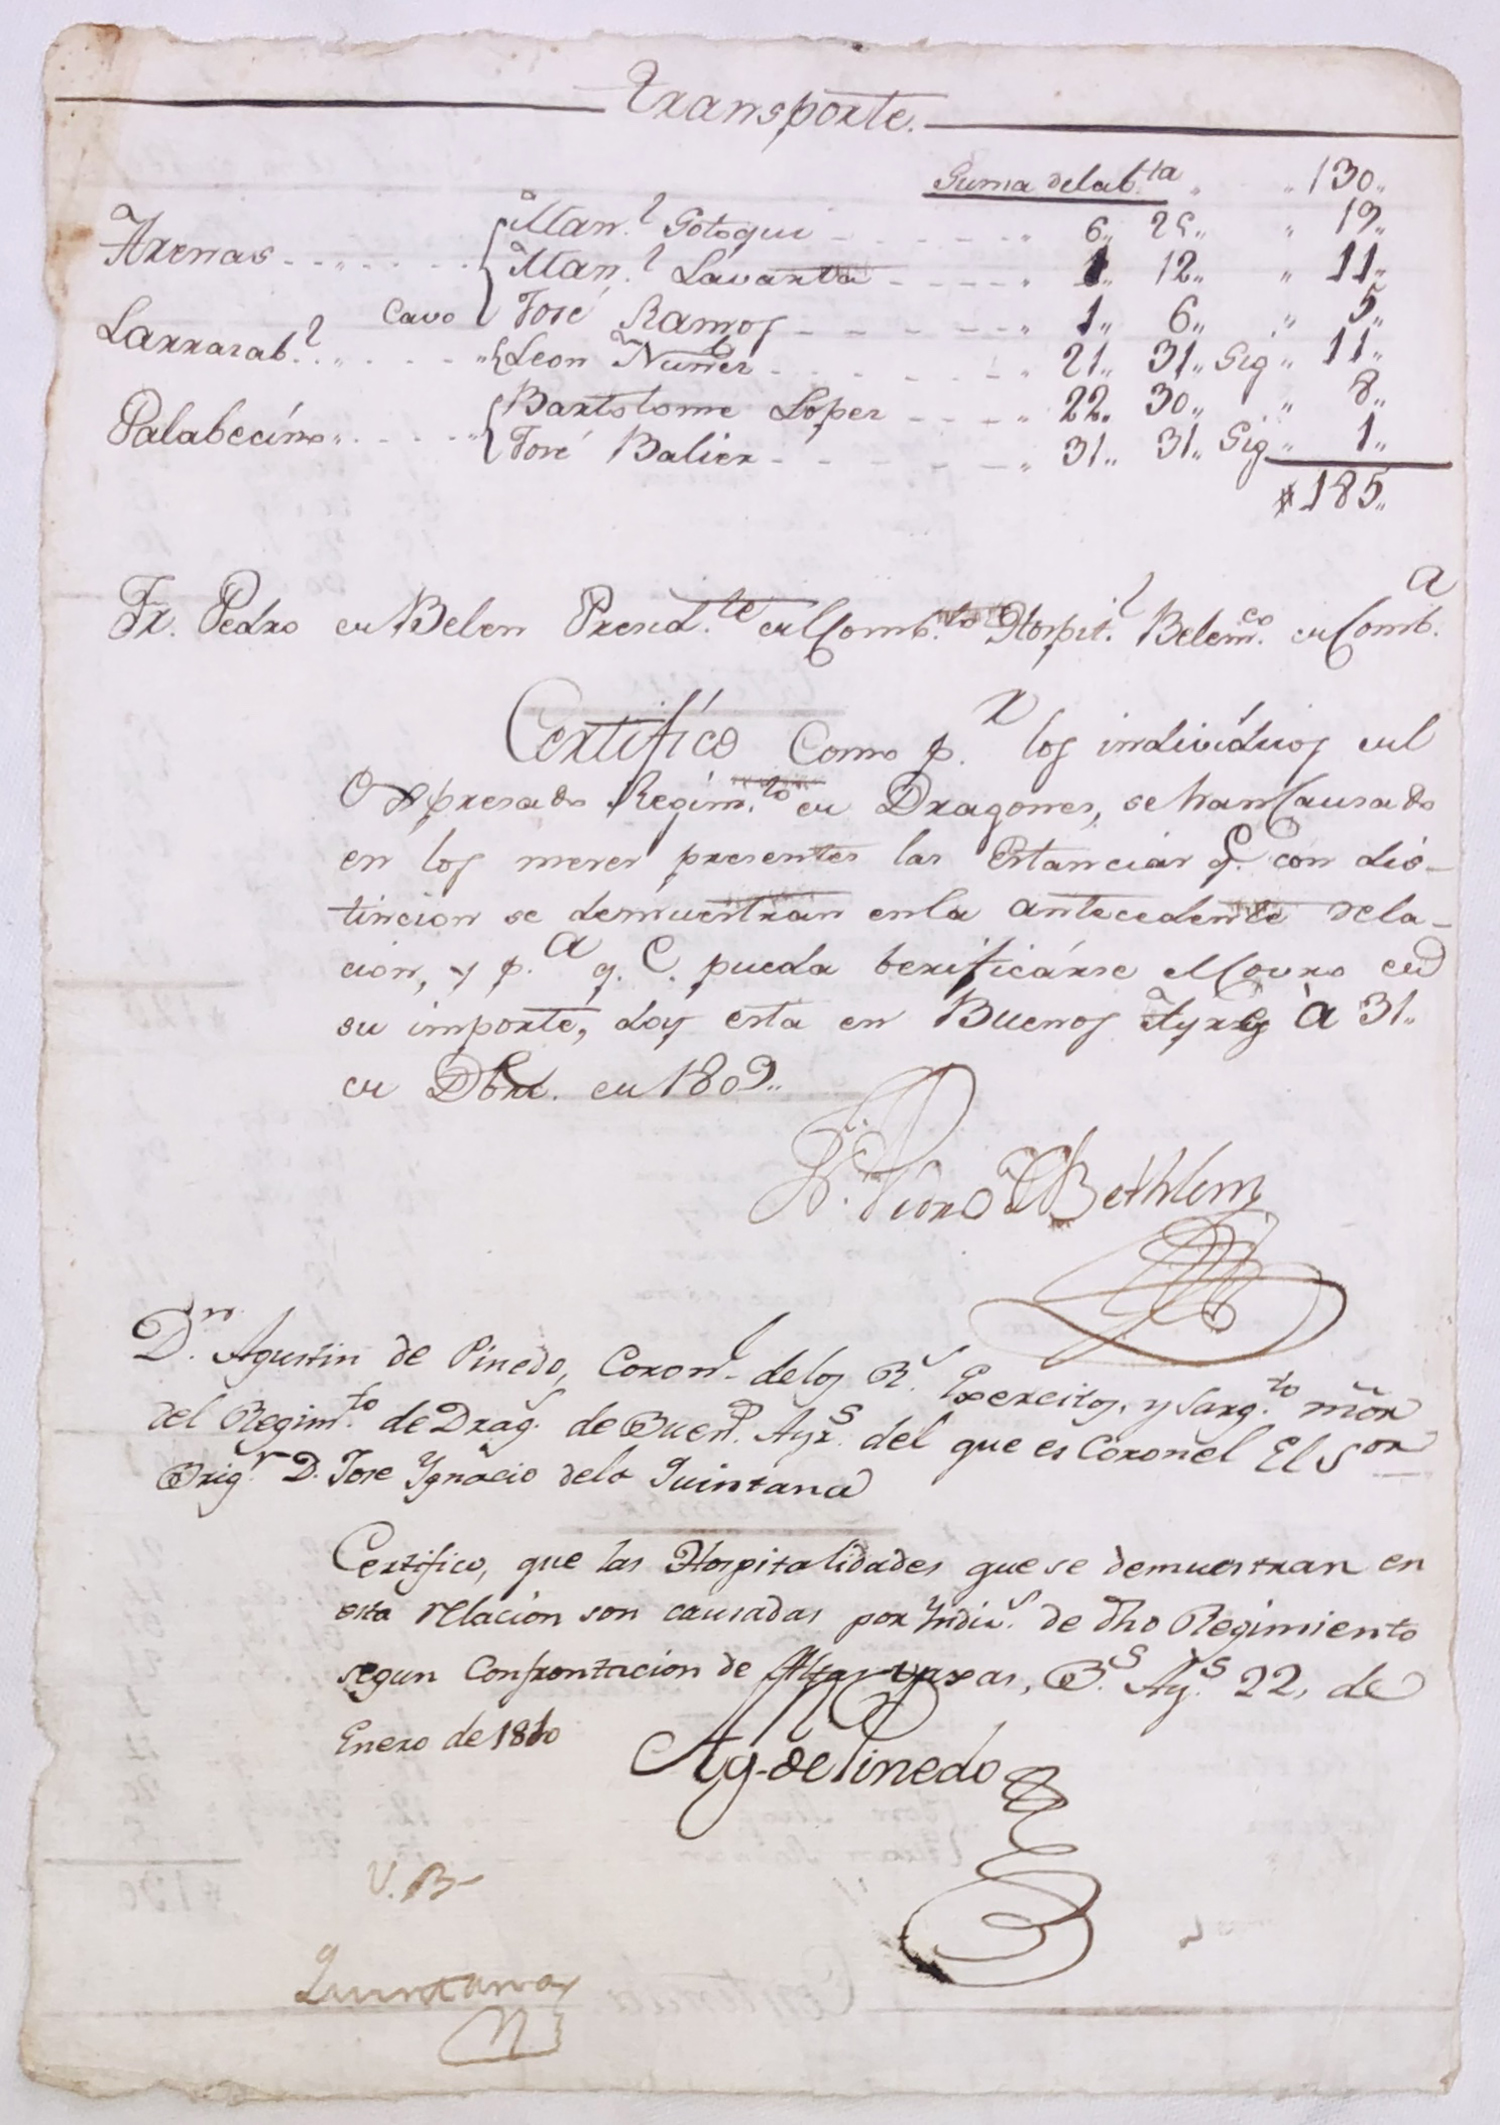 Transporte.
Suma de la b.ta „ „ 130„
Arenas Man.l Gotogui „ 6„ 25„ „ 19„
Man.l Lavarta „ 1„ 12„ „ 11„
Cavo José Ramos „ 1„ 6„ „ 5„
Larrasab.l „ Leon Nuñes „ 21„ 31„ Sig „ 11„
Palabecino „ Bartolome Lopes „ 22„ 30„ „ 8„
José Balier „ 31„ 31„ Sig „ 1„
# 185„
Fr. Pedro de Belen Presid.te del Comb.to Hospit.l Belem.co de Comb.a
Certifico Como p.r los individuos del
Expresado Regim.to de Dragones, se han Causado
en los meses presentes las Estancias q.e con dis-
tincion se demuestran en la antecedente rela-
cion, y p.a q.e pueda berificárse el Covro de
su importe, doy esta en Buenos Ayres á 31„
de Dbre. de 1809„
Fr. Pedro de Bethlem
D.n Agustin de Pinedo, Coron.l de los R.s Exercitos, y Sarg.to mõr
del Regim.to de Drag.s de Buen.s Ayr.s del que es Coronel El S.or
Brig.r D. Jose Ygnacio de la Quintana
Certifico, que las Hospitalidades que se demuestran en
esta relacion son causadas por Yndiv.s de dho Regimiento
segun Confrontacion de Altas y vaxas, B.s Ay.s 22, de
Enero de 1810
Ag. de Pinedo
V. B.
Quintana